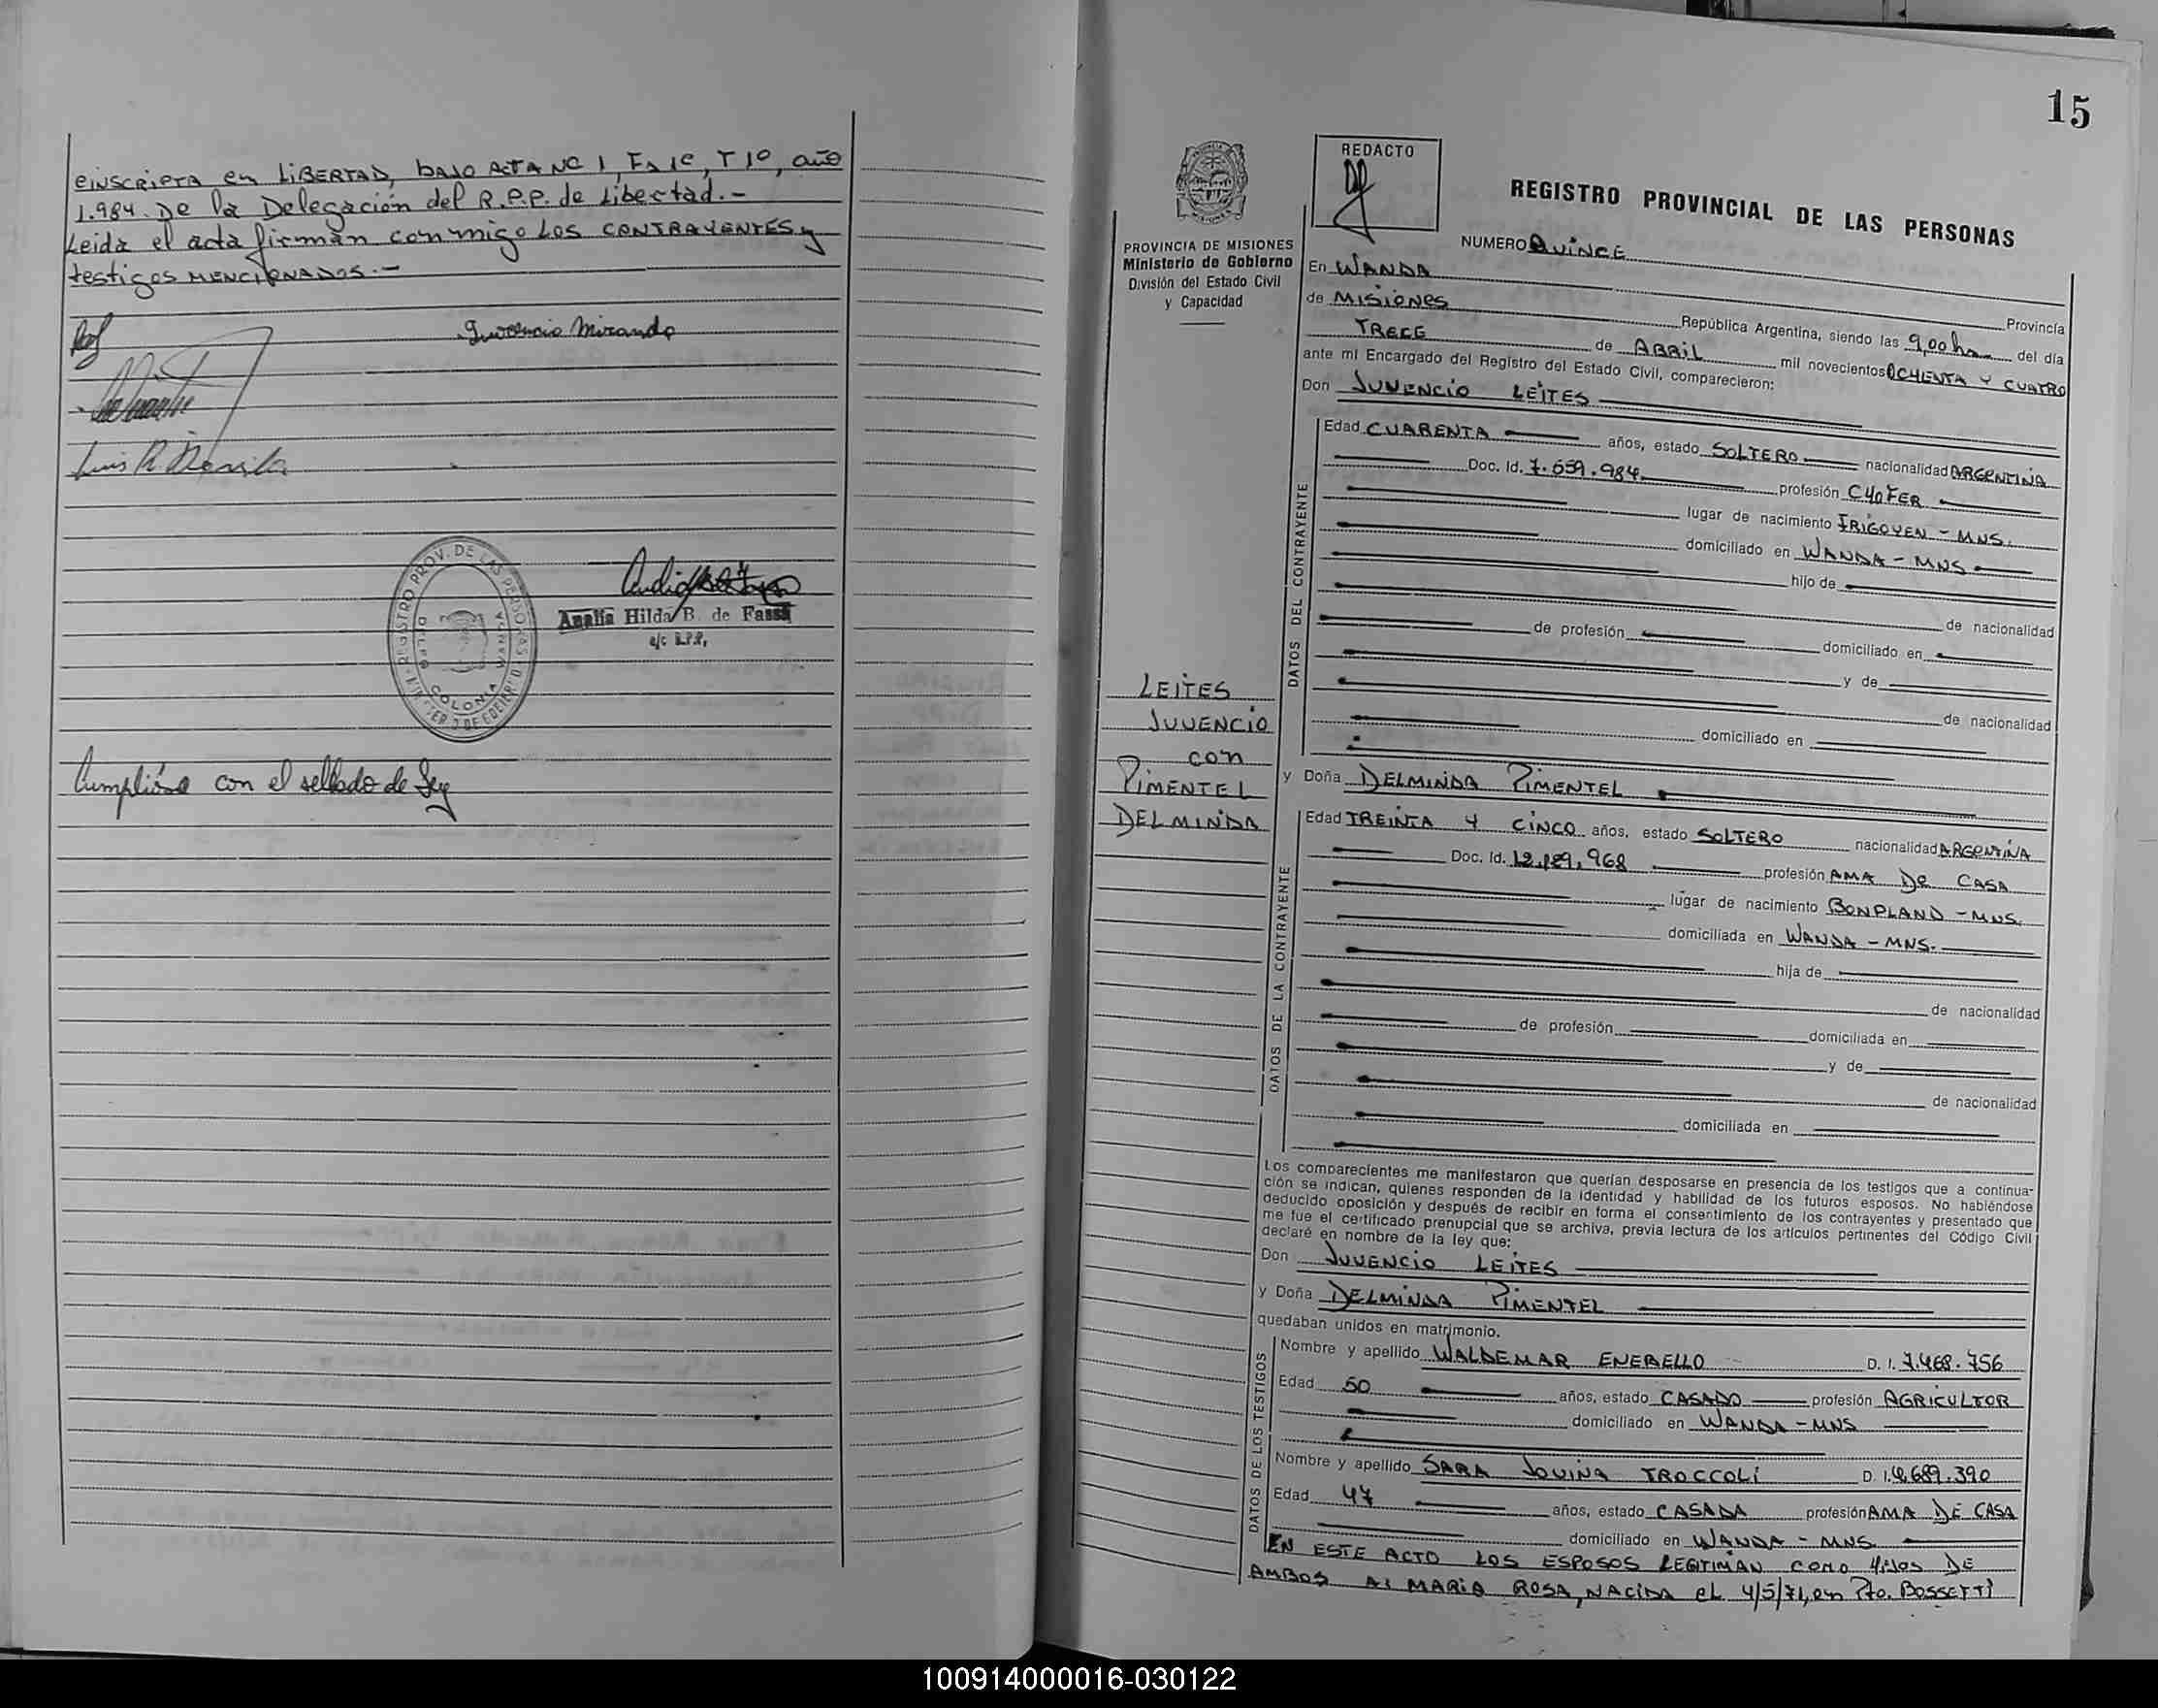 einscripta en LIBERTAD, bajo ACTA Nº 1, Fº 1º, Tº 1º, año
1.984. De la Delegación del R.P.P. de Libertad.-
Leida el acta firman conmigo los CONTRAYENTES y
testigos MENCIONADOS.-
Juvencio Miranda
Luis R.
REGISTRO PROV. DE LAS PERSONAS
COLONIA WANDA
Analía Hilda B. de Fassa
a/c R.P.P.
Cumplióse con el sellado de Ley
15
REDACTO
PROVINCIA DE MISIONES
Ministerio de Gobierno
División del Estado Civil
y Capacidad
REGISTRO PROVINCIAL DE LAS PERSONAS
NUMERO QUINCE
En WANDA Provincia
de MISIONES República Argentina, siendo las 9,00 hs del día
TRECE de ABRIL mil novecientos OCHENTA Y CUATRO
ante mi Encargado del Registro del Estado Civil, comparecieron:
Don JUVENCIO LEITES
DATOS DEL CONTRAYENTE
Edad CUARENTA años, estado SOLTERO nacionalidad ARGENTINA
Doc. Id. 7.659.984 profesión CHOFER
lugar de nacimiento IRIGOYEN - MNS.
domiciliado en WANDA - MNS
hijo de
de nacionalidad
de profesión domiciliado en
y de
de nacionalidad
domiciliado en
LEITES
JUVENCIO
con
PIMENTEL
DELMINDA
y Doña DELMINDA PIMENTEL
DATOS DE LA CONTRAYENTE
Edad TREINTA Y CINCO años, estado SOLTERO nacionalidad ARGENTINA
Doc. Id. 12.129.968 profesión AMA DE CASA
lugar de nacimiento BONPLAND - MNS.
domiciliada en WANDA - MNS.
hija de
de nacionalidad
de profesión domiciliada en
y de
de nacionalidad
domiciliada en
Los comparecientes me manifestaron que querían desposarse en presencia de los testigos que a continua-
ción se indican, quienes responden de la identidad y habilidad de los futuros esposos. No habiéndose
deducido oposición y después de recibir en forma el consentimiento de los contrayentes y presentado que
me fue el certificado prenupcial que se archiva, previa lectura de los artículos pertinentes del Código Civil
declaré en nombre de la ley que:
Don JUVENCIO LEITES
y Doña DELMINDA PIMENTEL
quedaban unidos en matrimonio.
DATOS DE LOS TESTIGOS
Nombre y apellido WALDEMAR ENEBELLO D. I. 7.468.756
Edad 50 años, estado CASADO profesión AGRICULTOR
domiciliado en WANDA - MNS
Nombre y apellido SARA JOVINA TROCCOLI D. I. 4.689.390
Edad 47 años, estado CASADA profesión AMA DE CASA
domiciliado en WANDA - MNS.
EN ESTE ACTO LOS ESPOSOS LEGITIMAN COMO HIJOS DE
AMBOS A: MARIA ROSA, NACIDA EL 4/5/71, en Pto. BOSSETTI
100914000016-030122